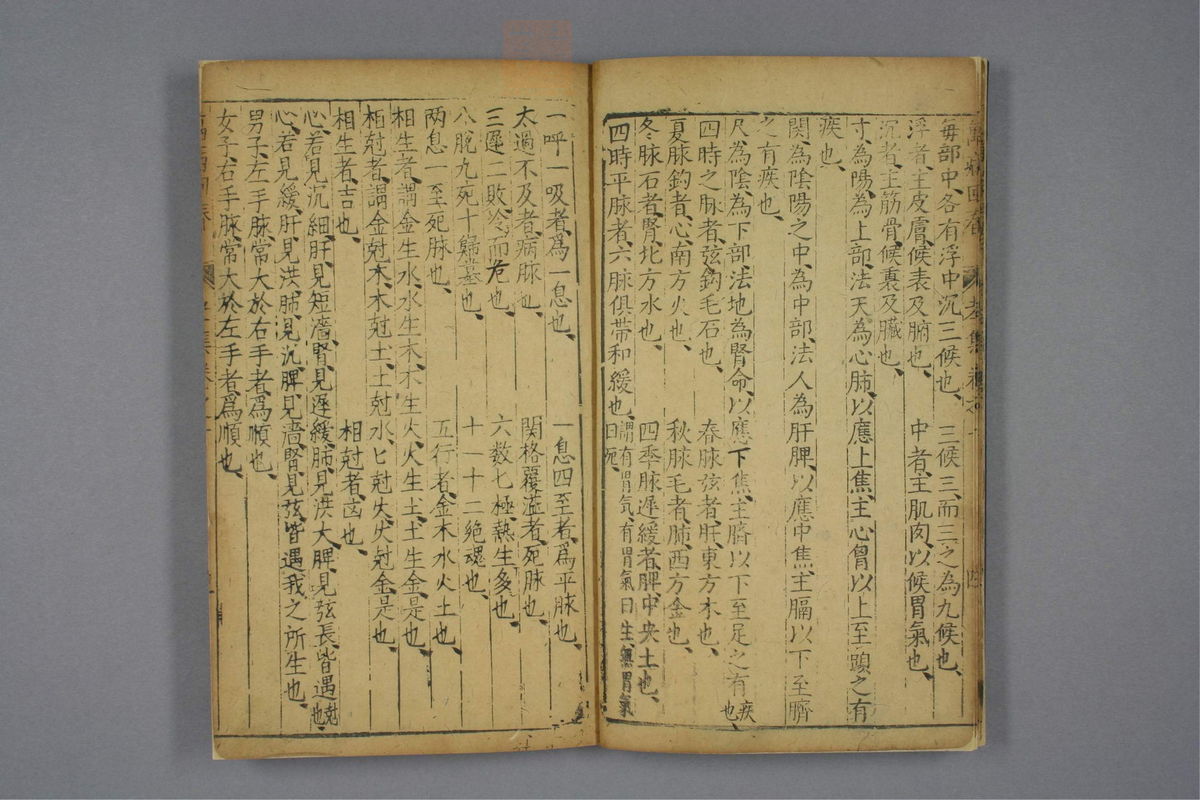 每部中、各有浮中沉三候也、 三候三而三之為九候也、
浮者、主皮膚、候表及腑也、 中者、主肌肉、以候胃氣也、
沉者、主筋骨、候裏及臟也、
寸為陽、為上部、法天、為心肺、以應上焦、主心胷以上至頭之有
疾也、
関為陰陽之中、為中部、法人、為肝脾、以應中焦、主膈以下至臍
之有疾也、
尺為陰、為下部、法地、為腎命、以應下焦、主臍以下至足之有疾也、
四時之脉者、弦鈎毛石也、 春脉弦者、肝、東方木也、
夏脉鈎者、心、南方火也、 秋脉毛者、肺、西方金也、
冬脉石者、腎、北方水也、 四季脉遲緩者、脾、中央土也、
四時平脉者、六脉俱带和緩也、謂有胃気、有胃氣曰生、無胃氣曰死、
一呼一吸者、為一息也、 一息四至者、為平脉也、
太過不及者、病脉也、 関格覆溢者、死脉也、
三遲二敗、冷而危也、 六数七極、熱生多也、
八脫九死十歸墓也、 十一十二絶魂也、
两息一至死脉也、 五行者、金木水火土也、
相生者、謂金生水、水生木、木生火、火生土、土生金、是也、
相尅者、謂金尅木、木尅土、土尅水、匕尅火、火尅金、是也、
相生者、吉也、 相尅者、凶也、
心若見沉細、肝見短濇、腎見遲緩、肺見洪大、脾見弦長、皆遇尅也、
心若見緩、肝見洪、肺見沉、脾見濇、腎見弦、皆遇我之所生也、
男子左手脉常大於右手者、為順也、
女子右手脉常大於左手者、為順也、